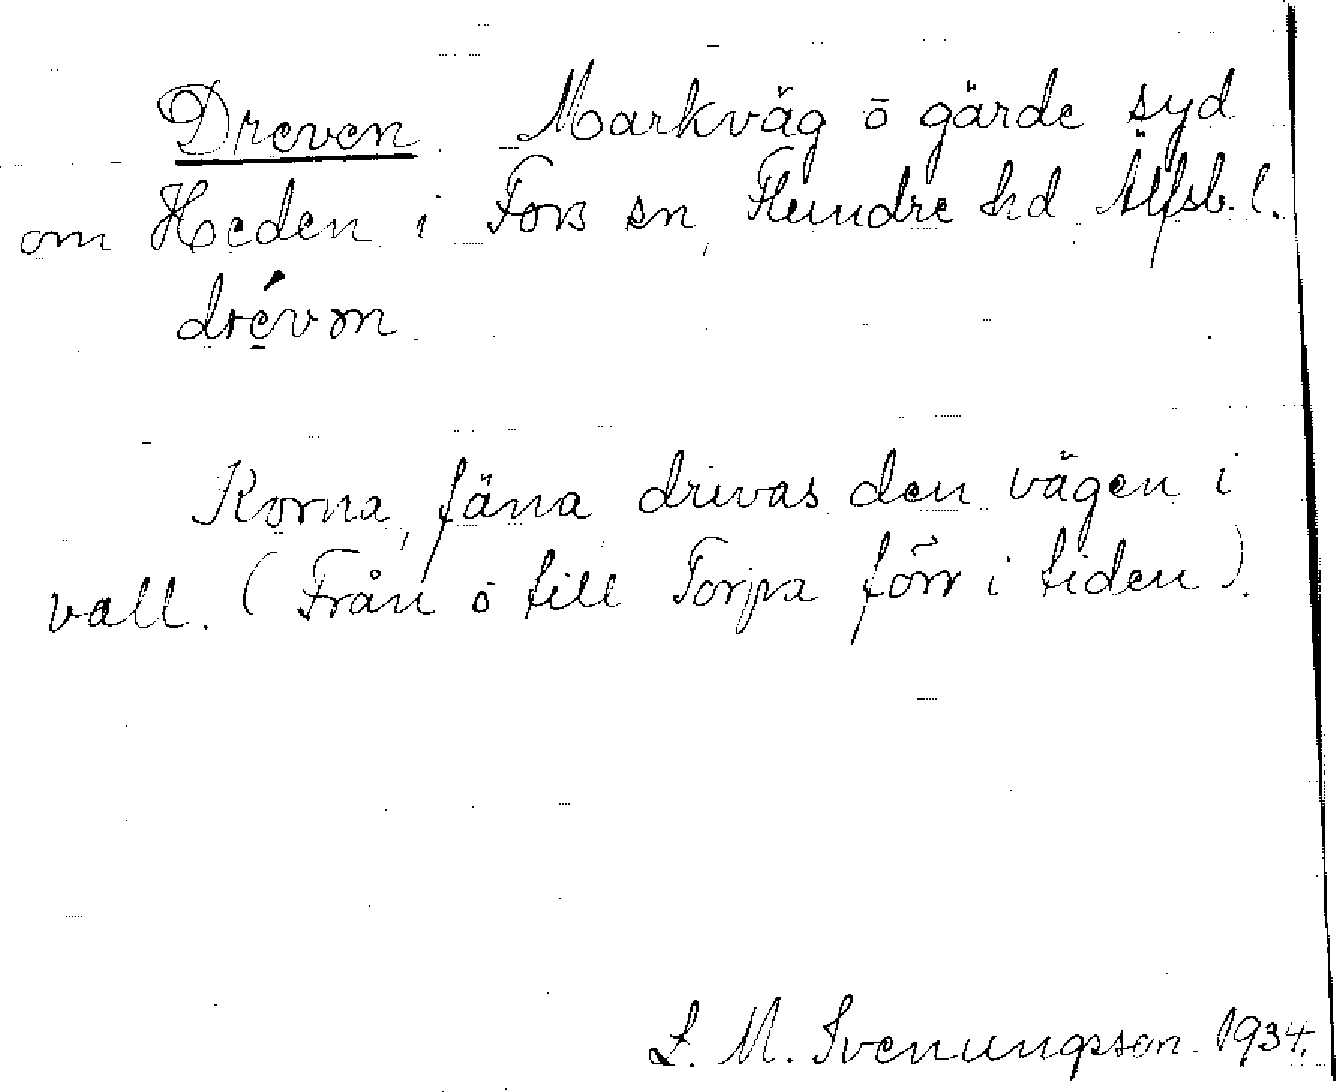 Dreven. Markväg o gärde syd
om Heden i Fors sn, Flundre hd. Älfsb. l.
drévən
Korna, fäna drivas den vägen i
vall. (Från o till Torpa förr i tiden).
L. M. Svenungsson 1934.